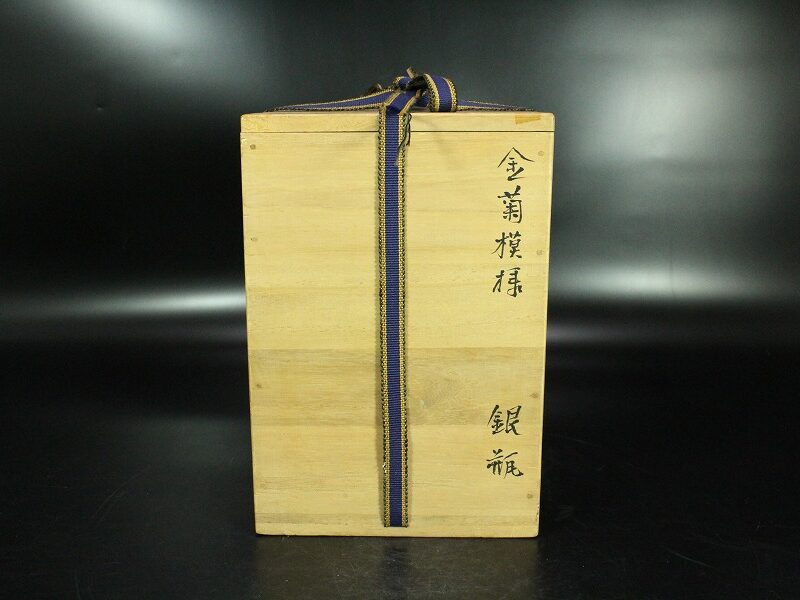 金菊模様
銀瓶